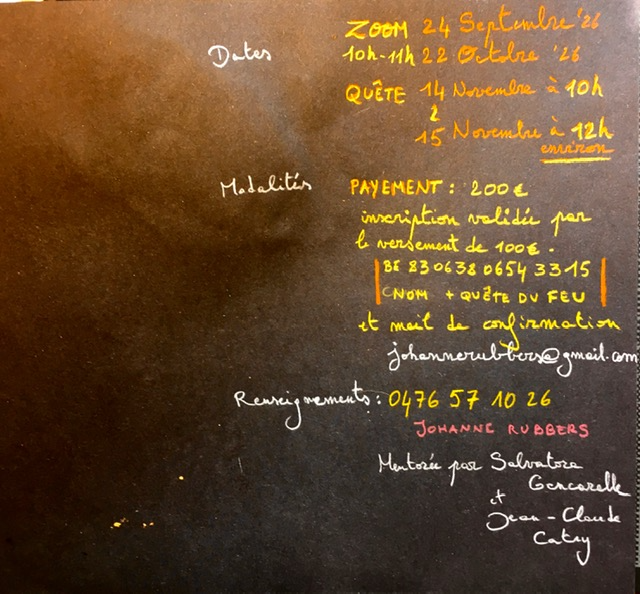 ZOOM 24 Septembre '26
Dates 10h-11h 22 Octobre '26
QUÊTE 14 Novembre à 10h
15 Novembre à 12h
environ
Modalités PAYEMENT : 200€
inscription validée par
le versement de 100€.
BE 83 0638 0654 3315
NOM + QUÊTE DU FEU
et mail de confirmation
johannerubbers@gmail.com
Renseignements : 0476 57 10 26
JOHANNE RUBBERS
Mentorée par Salvatore
Gencarelle
et
Jean-Claude